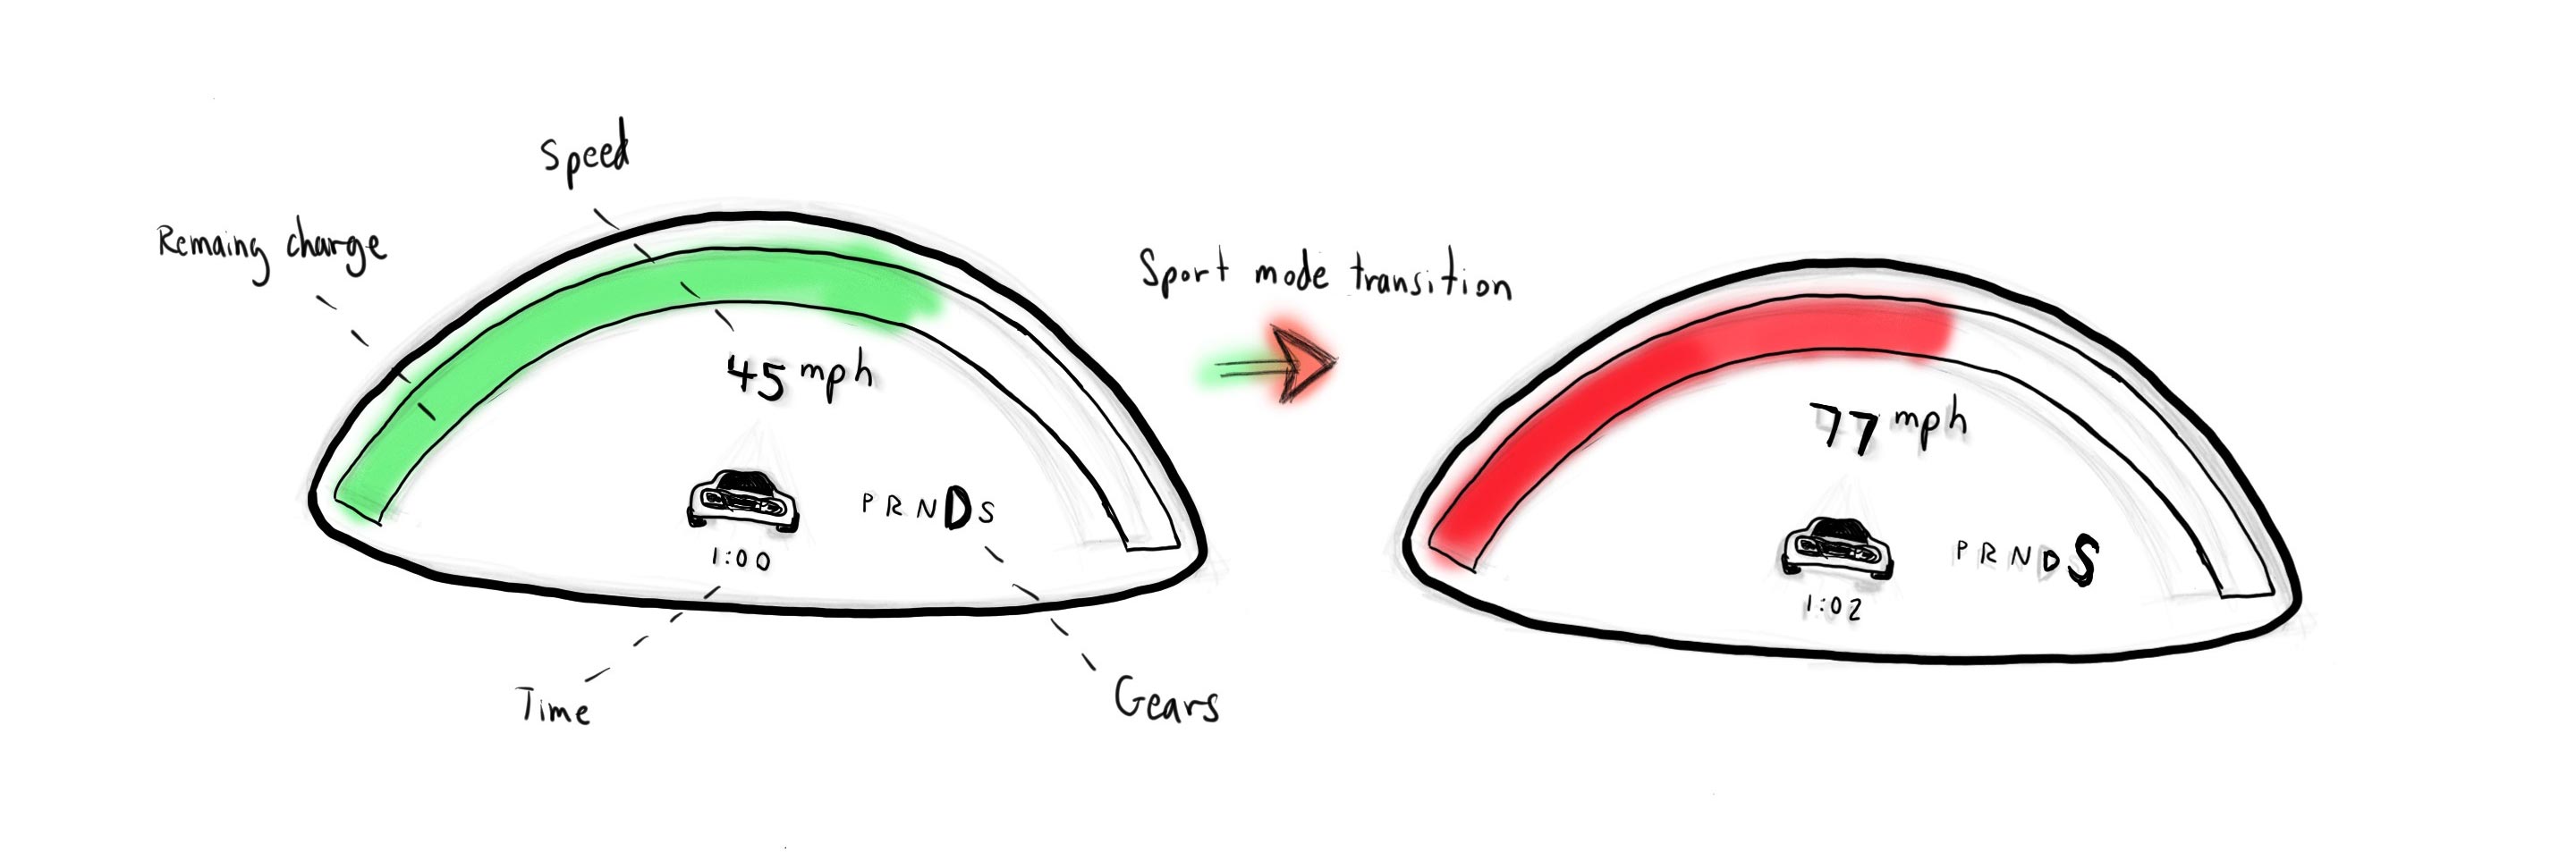 Speed
Remaing charge
45 mph
P R N D S
1:00
Time
Gears
Sport mode transition
77 mph
P R N D S
1:02